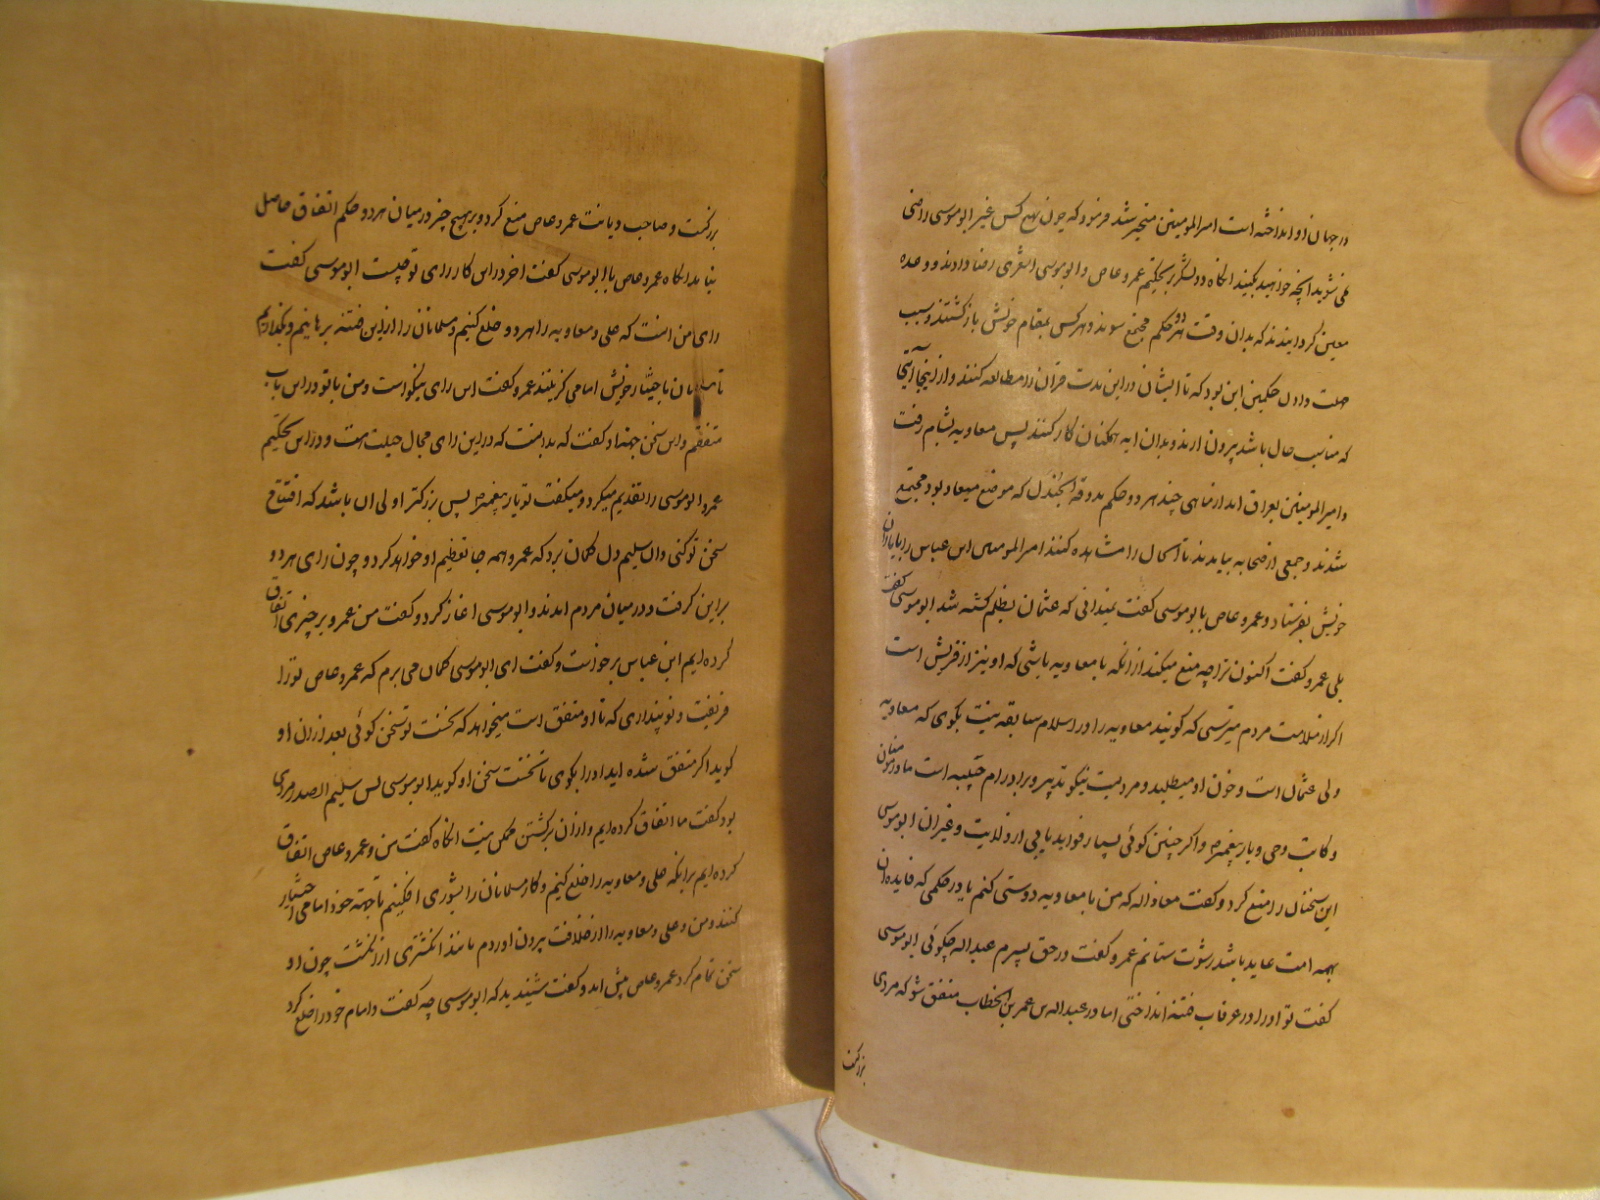 در جهان او انداخته است امیرالمومنین متحیر شد فرمود که چون بهیچ کس غیر ابوموسی راضی
نمی شوید آنچه خواهید بکنید آنگاه دو لشکر بتحکیم عمرو عاص و ابوموسی اشعری رضا دادند و وعده
معین کردانیدند که بدان وقت هر دو حکم مجتمع شوند و هر کس بمقام خویش بازکشتند و سبب
مهلت دادن حکمین این بود که تا ایشان در این مدت قرآن را مطالعه کنند و از اینجا آیتی
که مناسب حال باشد بیرون ارند و بدان ایه همکنان کار کنند پس معاویه بشام رفت
و امیرالمومنین بعراق امد از ماهی چند هر دو حکم بدومة الجندل که موضع میعاد بود مجتمع
شدند و جمعی از صحابه بیامدند تا آن حال را مشاهده کنند امیرالمومنین ابن عباس را با یاران
خویش بفرستاد و عمرو عاص با ابوموسی کفت نمیدانی که عثمان بظلم کشته شد ابوموسی کفت
بلی عمرو کفت اکنون ترا چه منع میکند از انکه با معاویه باشی که او نیز از قریش است
اکر از ملامت مردم میترسی که کویند معاویه را در اسلام سابقه نیست بکوی که معاویه
ولی عثمان است و خون او میطلبد و مردیست نیکو تدبیر و برادر ام حبیبه است مادر مومنان
و کاتب وحی و یار پیغمبر و اکر چنین کوئی بسیار فواید یابی از ولایت و غیر ان ابوموسی
این سخنان را منع کرد و کفت معاذ اله که من با معاویه دوستی کنم یا در حکمی که فایده ان
بهمه امت عاید باشد رشوت ستانم عمرو کفت در حق پسرم عبداله چکوئی ابوموسی
کفت تو او را در غرقاب فتنه انداختی اما در عبداله بن عمر بن الخطاب متفق شو که مردی
بزرکست
بزرکست و صاحب دیانت عمرو عاص منع کرد و بر هیچ چیز در میان هر دو حکم اتفاق حاصل
نیامد انکاه عمرو عاص با ابوموسی کفت اخر در این کار رای تو چیست ابوموسی کفت
رای من انست که علی و معاویه را هر دو خلع کنیم و مسلمانان را از این فتنه برهانیم و بکذاریم
تا مسلمانان باختیار خویش امامی کزینند عمرو کفت این رای نیکو است و من با تو در این باب
متفقم و این سخن جهت او کفت که بدانست که در این رای مجال حیلت است و در این تحکیم
عمرو ابوموسی را تقدیم میکرد و میکفت تو یار پیغمبر پس بزرکتر اولی ان باشد که افتتاح
سخن تو کنی و ان سلیم دل کمان برد که عمرو همه جا تعظیم او خواهد کرد و چون رای هر دو
بر این کرفت و در میان مردم امدند و ابوموسی اغاز کرد و کفت من و عمرو بر چیزی اتفاق
کرده ایم ابن عباس برخواست و کفت ای ابوموسی کمان می برم که عمرو عاص تو را
فریفت و تو پنداری که با او متفق است میخواهد که نخست تو سخن کوئی بعد از ان او
کوید اکر متفق شده اید او را بکوی تا نخست سخن او کوید ابوموسی بس سلیم الصدر مردی
بود کفت ما اتفاق کرده ایم و از ان برکشتن ممکن نیست انکاه کفت من و عمرو عاص اتفاق
کرده ایم بر انکه علی و معاویه را خلع کنیم و کار مسلمانان را بشوری افکنیم تا جهة خود امامی اختیار
کنند و من و علی و معاویه را از خلافت بیرون اوردم مانند انکشتری از انکشت چون او
سخن تمام کرد عمرو عاص پیش امد و کفت شنیدید که ابوموسی چه کفت و امام خود را خلع کرد